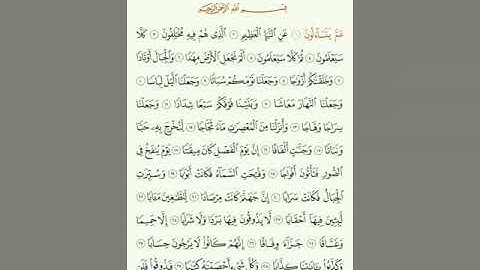 بِسْمِ اللَّهِ الرَّحْمَٰنِ الرَّحِيمِ
عَمَّ يَتَسَاءَلُونَ ١ عَنِ النَّبَإِ الْعَظِيمِ ٢ الَّذِي هُمْ فِيهِ مُخْتَلِفُونَ ٣ كَلَّا
سَيَعْلَمُونَ ٤ ثُمَّ كَلَّا سَيَعْلَمُونَ ٥ أَلَمْ نَجْعَلِ الْأَرْضَ مِهَادًا ٦ وَالْجِبَالَ أَوْتَادًا
٧ وَخَلَقْنَاكُمْ أَزْوَاجًا ٨ وَجَعَلْنَا نَوْمَكُمْ سُبَاتًا ٩ وَجَعَلْنَا اللَّيْلَ لِبَاسًا ١٠
وَجَعَلْنَا النَّهَارَ مَعَاشًا ١١ وَبَنَيْنَا فَوْقَكُمْ سَبْعًا شِدَادًا ١٢ وَجَعَلْنَا
سِرَاجًا وَهَّاجًا ١٣ وَأَنزَلْنَا مِنَ الْمُعْصِرَاتِ مَاءً ثَجَّاجًا ١٤ لِّنُخْرِجَ بِهِ حَبًّا
وَنَبَاتًا ١٥ وَجَنَّاتٍ أَلْفَافًا ١٦ إِنَّ يَوْمَ الْفَصْلِ كَانَ مِيقَاتًا ١٧ يَوْمَ يُنفَخُ فِي
الصُّورِ فَتَأْتُونَ أَفْوَاجًا ١٨ وَفُتِحَتِ السَّمَاءُ فَكَانَتْ أَبْوَابًا ١٩ وَسُيِّرَتِ
الْجِبَالُ فَكَانَتْ سَرَابًا ٢٠ إِنَّ جَهَنَّمَ كَانَتْ مِرْصَادًا ٢١ لِّلطَّاغِينَ مَآبًا ٢٢
لَّابِثِينَ فِيهَا أَحْقَابًا ٢٣ لَّا يَذُوقُونَ فِيهَا بَرْدًا وَلَا شَرَابًا ٢٤ إِلَّا حَمِيمًا
وَغَسَّاقًا ٢٥ جَزَاءً وِفَاقًا ٢٦ إِنَّهُمْ كَانُوا لَا يَرْجُونَ حِسَابًا ٢٧
وَكَذَّبُوا بِآيَاتِنَا كِذَّابًا ٢٨ وَكُلَّ شَيْءٍ أَحْصَيْنَاهُ كِتَابًا ٢٩ فَذُوقُوا فَلَن